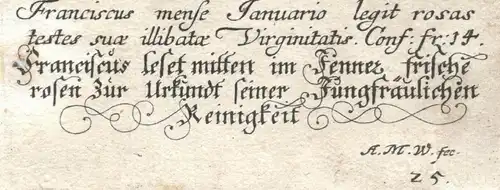 Franciscus mense Ianuario legit rosas
testes suæ illibatæ Virginitatis. Conf. fr. 14.
Franciscus leset mitten im Jenner frische
rosen zur Urkundt seiner Jungfräulichen
Reinigkeit
A. M. W. fec.
25.